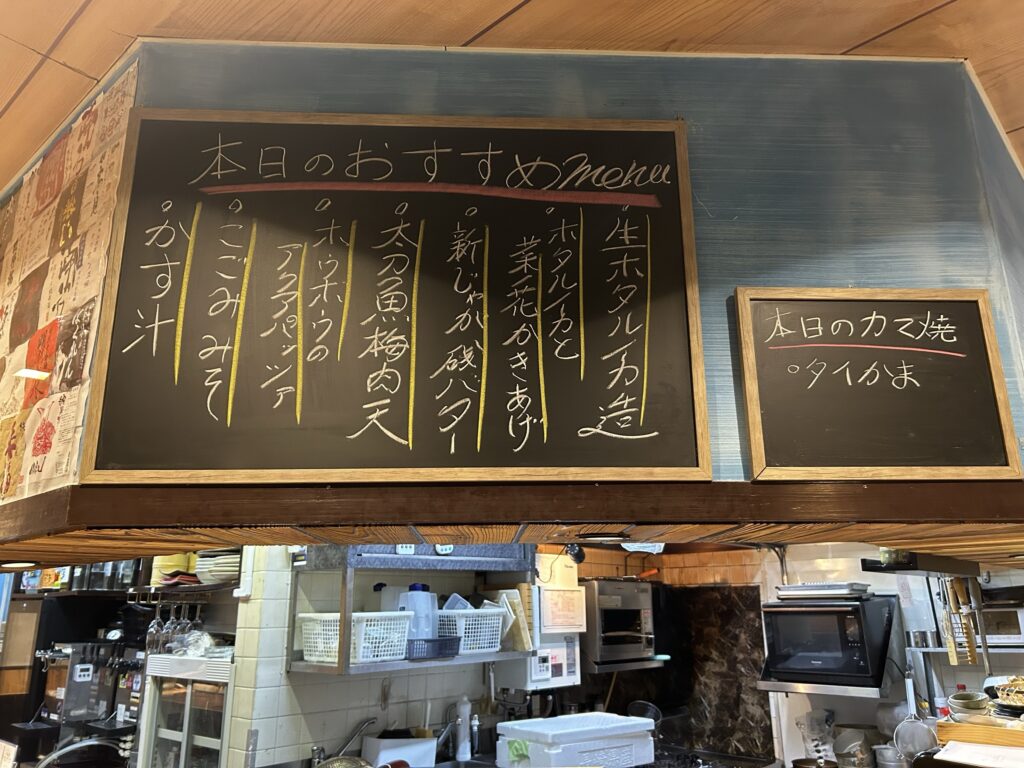 本日のおすすめmenu
○生ホタルイカ造
○ホタルイカと
菜花かきあげ
新じゃが磯バター
○太刀魚梅肉天
○ホウボウの
アクアパッツァ
○こごみみそ
○かす汁
本日のカマ焼
○タイかま